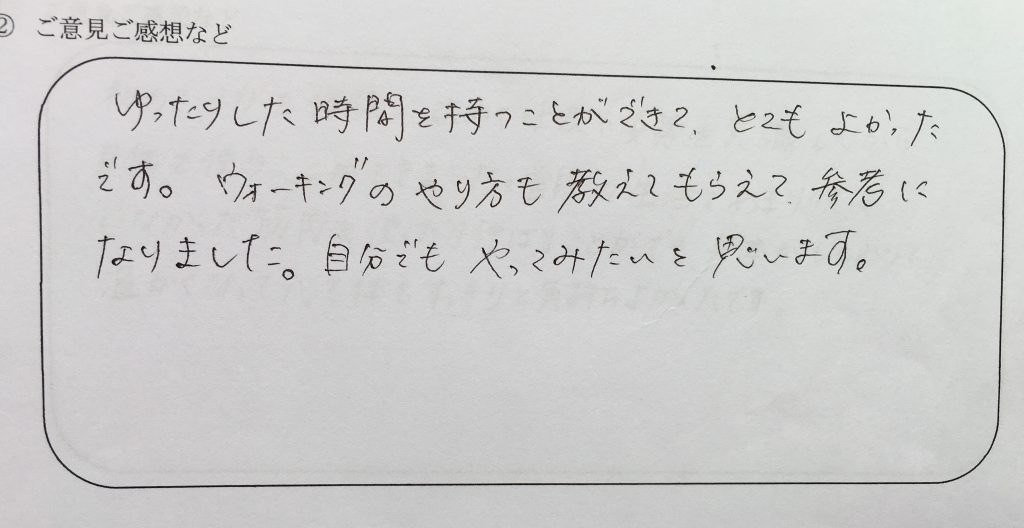 ② ご意見ご感想など
ゆったりした時間を持つことができて、とてもよかった
です。ウォーキングのやり方も教えてもらえて、参考に
なりました。自分でもやってみたいと思います。